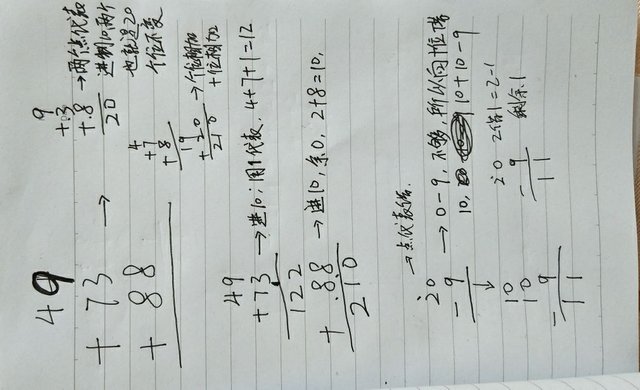 49
+73
+88
9
+.3
+.8
20
→两点代表
进制10两个
也就是20
个位不变
4
+7
+8
19
19
+20
210
→个位相加
十位相加
49
+73
122
+.88
210
→进10,用1代表,4+7+1=12
→进10,余0,2+8=10,
→点代表借.
20
-9
→0-9,不够,所以向十位借
10, 10+10-9
↓
10
10
-9
11
20 2借1=2-1
剩余1
-9
11